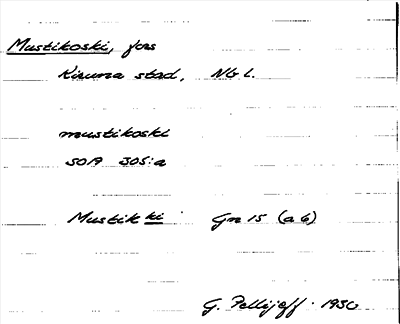 Mustikoski, fors
Kiruna stad, Nb L.
mustikoski
SOA 305:a
Mustik ki Gn 15 (a 6)
G. Pellijeff. 1950